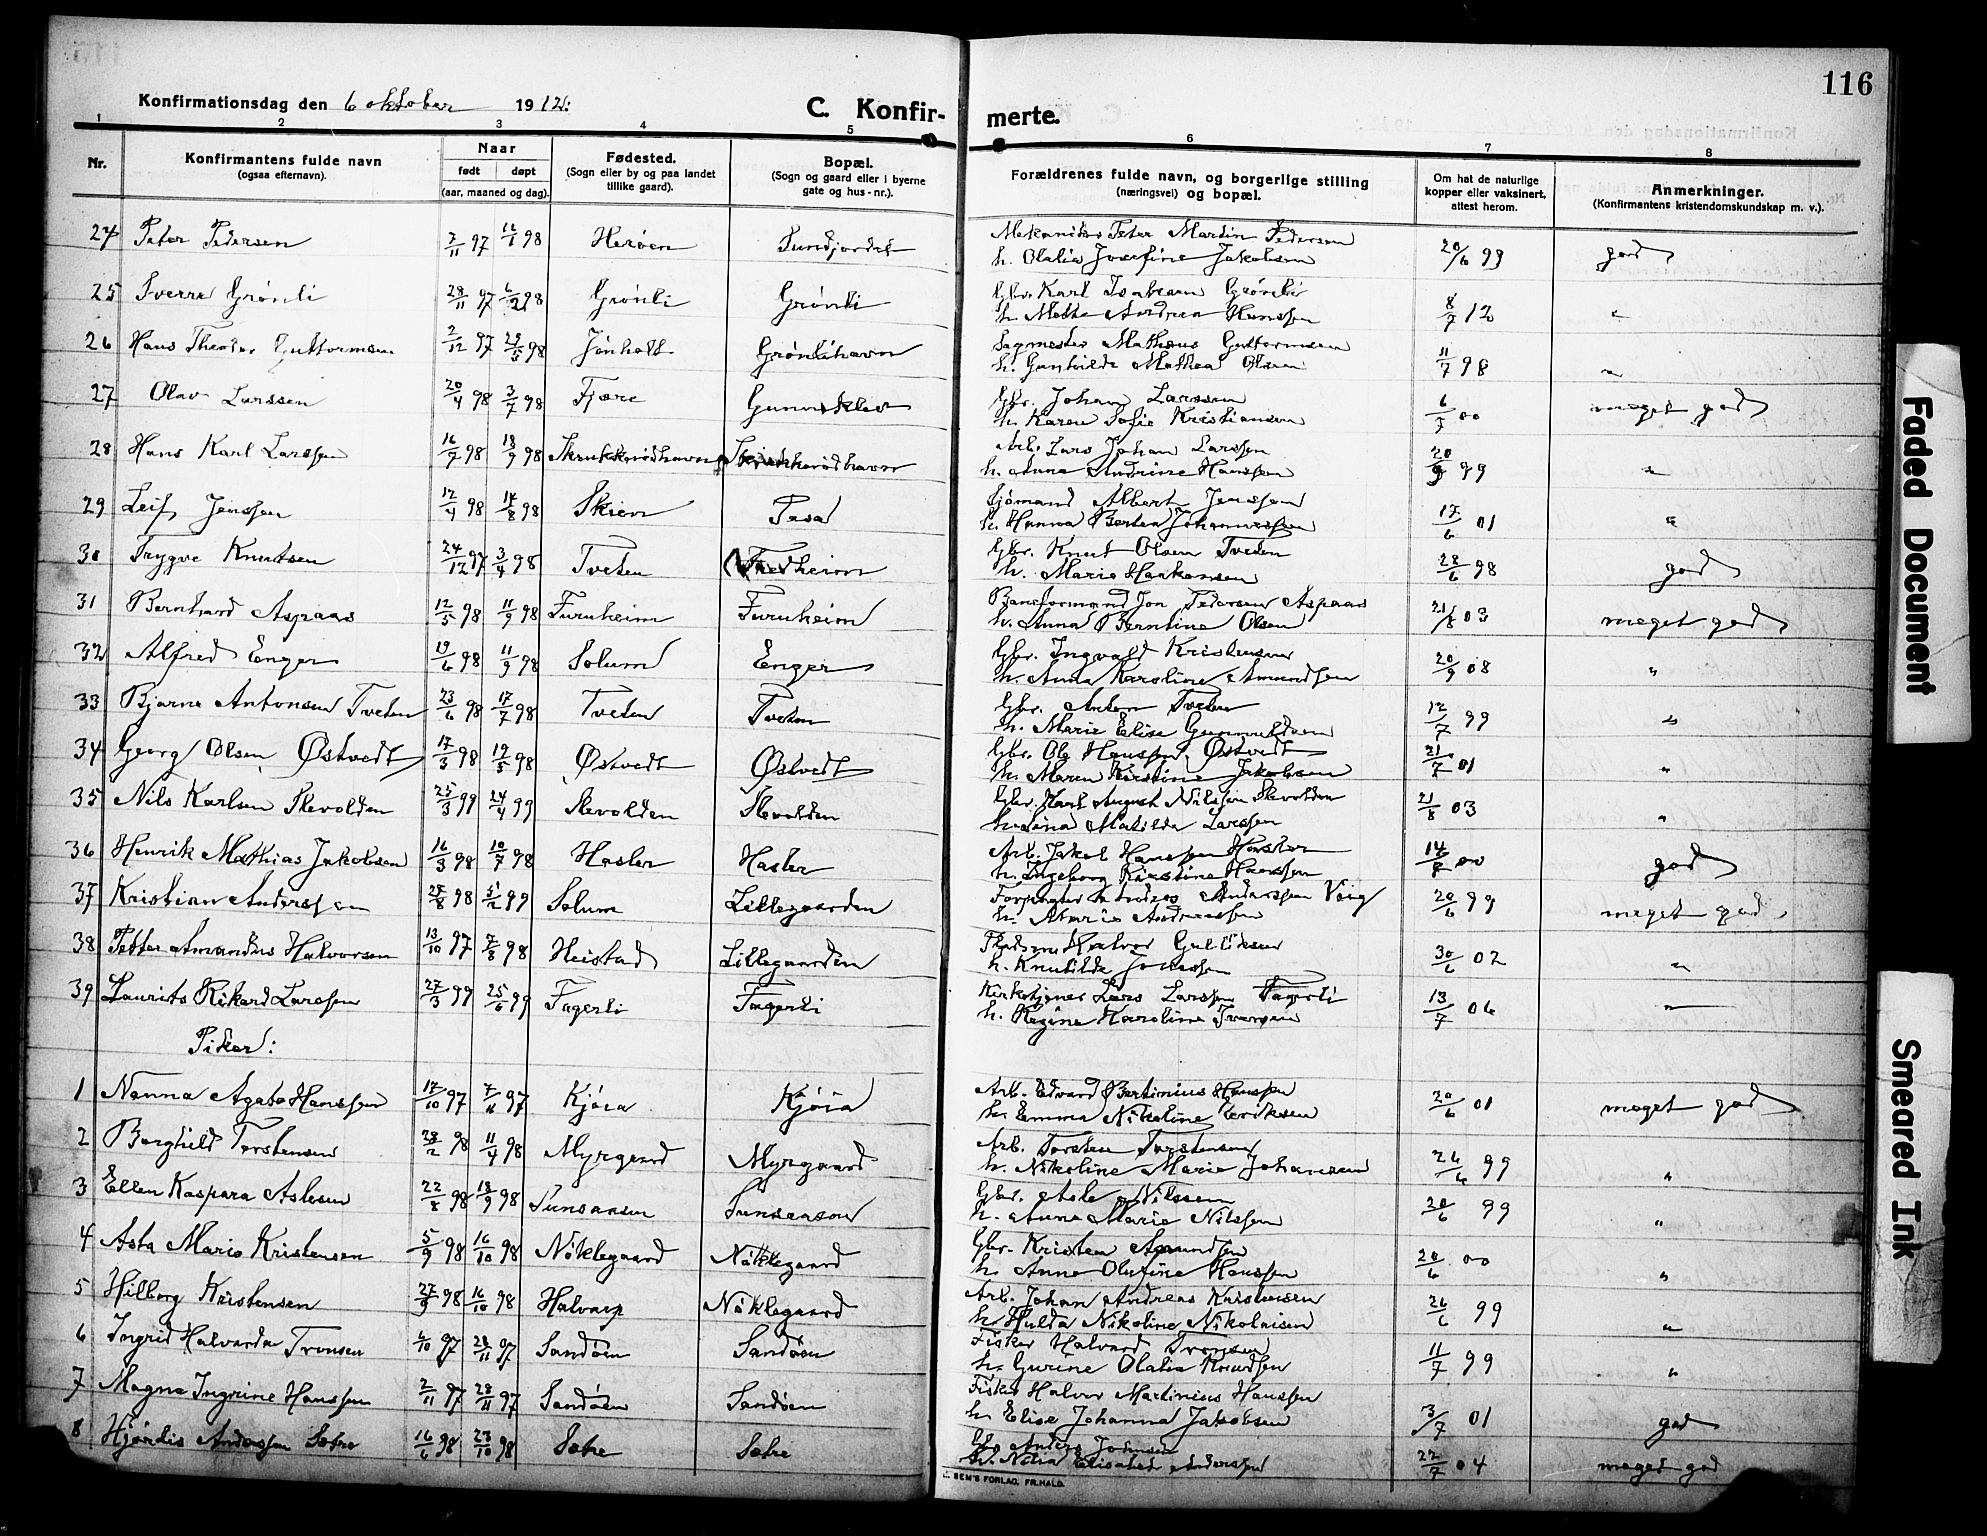 116
Konfirmationsdag den 6 oktober 1912.
C. Konfir- merte.
1 2 3 4 5 6 7 8
Nr. Konfirmantens fulde navn (ogsaa efternavn). Naar født døpt (aar, maaned og dag). Fødested. (Sogn eller by og paa landet tillike gaard). Bopæl. (Sogn og gaard eller i byerne gate og hus-nr.). Forældrenes fulde navn, og borgerlige stilling (næringsvei) og bopæl. Om hat de naturlige kopper eller vaksinert, attest herom. Anmerkninger. (Konfirmantens kristendomskundskap m. v.).
24 Peter Pedersen 2/11 97 12/1 98 Herøen Sundjordet Mekaniker Peter Martin Pedersen
h. Olalia Josefine Jakobsen 20/6 99 god
25 Sverre Grönli 28/11 97 98 Grönli Grönli Gbr. Karl Isaksen Grönli
h. Mette Andrea Hanssen 8/7 12 "
26 Hans Guttormsen 2/12 97 98 Jönholt Grönlihavn Sagmester Mathæus Guttormsen
h. Gunhilde Mathea Olsen 11/7 98 "
27 Olav Larssen 20/4 98 3/7 98 Fjære Gunneklev Gbr. Johan Larssen
h. Karen Sofie Kristiansen 6/7 00 meget god
28 Hans Karl Larssen 16/7 98 18/9 98 Arb. Lars Johan Larssen
h. Anna Andrine Hanssen 20/9 99 "
29 Leif Jenssen 12/4 98 14/8 98 Skien Sjömand Albert Jenssen
h. Hanna Bertea Johannessen 17/6 01 "
30 Trygve Knutsen 24/12 97 3/4 98 Tveten Gbr. Knut Olsen Tveten
h. Marie Haakonsen 28/6 98 god
31 Bernhard Aspaas 12/5 98 11/9 98 Furuheim Furuheim Baneformand Jon Pedersen Aspaas
h. Anna Berntine Olsen 21/8 03 meget god
32 Alfred Enger 19/6 98 11/9 98 Solum Enger Gbr. Ingvald Kristensen
h. Anna Karoline Amundsen 20/9 08 "
33 Bjarne Antonsen Tveten 23/6 98 17/7 98 Tveten Tveten Gbr. Anton Tveten
h. Marie Elise 12/7 99 "
34 Georg Olsen Østvedt 17/3 98 19/5 98 Østvedt Østvedt Gbr. Ole Hanssen Østvedt
h. Maren Kirstine Jakobsen 21/7 01 "
35 Nils Karlsen Slevolden 25/3 99 24/4 99 Slevolden Slevolden Gbr. Karl August Nilssen Slevolden
h. Lina Matilde Larssen 21/8 03 "
36 Henrik Mathias Jakobsen 16/3 98 10/7 98 Hasler Hasler Arb. Jakob Hanssen Hasler
h. Ingeborg Kirstine Hanssen 00 god
37 Kristian Anderssen 98 99 Solum Lillegaarden Forpagter Anders Anderssen
h. Marie Andreassen 20/6 99 meget god
38 Petter Amandus Halvorsen 13/10 97 7/8 98 Heistad Lillegaarden Halvor
h. Knutilde 30/6 02 "
39 Laurits Rikard Larssen 27/3 99 25/6 99 Fagerli Fagerli Kirketjener Lars Larssen Fagerli
h. Regine Karoline Iversen 13/7 04 "
Piker:
1 Nanna Agate Hanssen 17/10 97 97 Kjöra Kjöra Arb. Edvard Bertinius Hanssen
h. Emma Nikoline Eriksen 20/6 01 meget god
2 Borghild Torstensen 28/2 98 11/4 98 Myrgaard Myrgaard Arb. Torsten Torstensen
h. Nikoline Marie Johansen 26/6 99 "
3 Ellen Kaspara Aslesen 22/8 98 18/9 98 Gbr. Asle Nilssen
h. Anne Marie Nilssen 20/6 99 "
4 Asta Marie Kristensen 5/9 98 16/10 98 Nöklegaard Nöklegaard Gbr. Kristen Amundsen
h. Anne Olufine Hanssen 20/6 00 "
5 Hilborg Kristensen 27/9 98 16/10 98 Halvarp Nöklegaard Arb. Johan Andreas Kristensen
h. Hulda Nikoline Nikolaisen 26/6 99 "
6 Ingrid Halvarda Tronsen 6/10 97 28/11 97 Sandöen Sandöen Fisker Halvard Tronsen
h. Gurine Olalia Knudsen 11/7 99 "
7 Magna Ingrine Hanssen 2/11 97 28/11 97 Sandöen Sandöen Fisker Halvor Martinius Hanssen
h. Elise Johanna Jakobsen 3/7 01 god
8 Hjördis Anderssen Sotre 16/6 98 23/10 98 Sotre Sotre Gbr. Anders
h. Elisabet Anderssen 22/7 04 meget god
SEM'S FORLAG, FR.HALD.
Faded Document
Smeared Ink